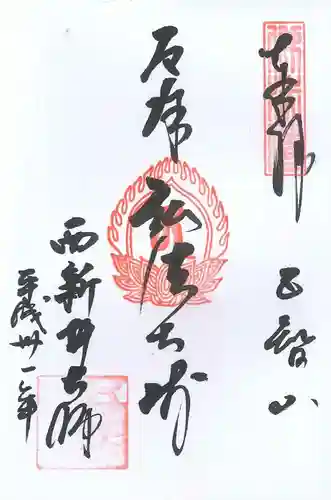 奉拝
五智山
厄除
弘法大師
西新井大師
平成卅一年